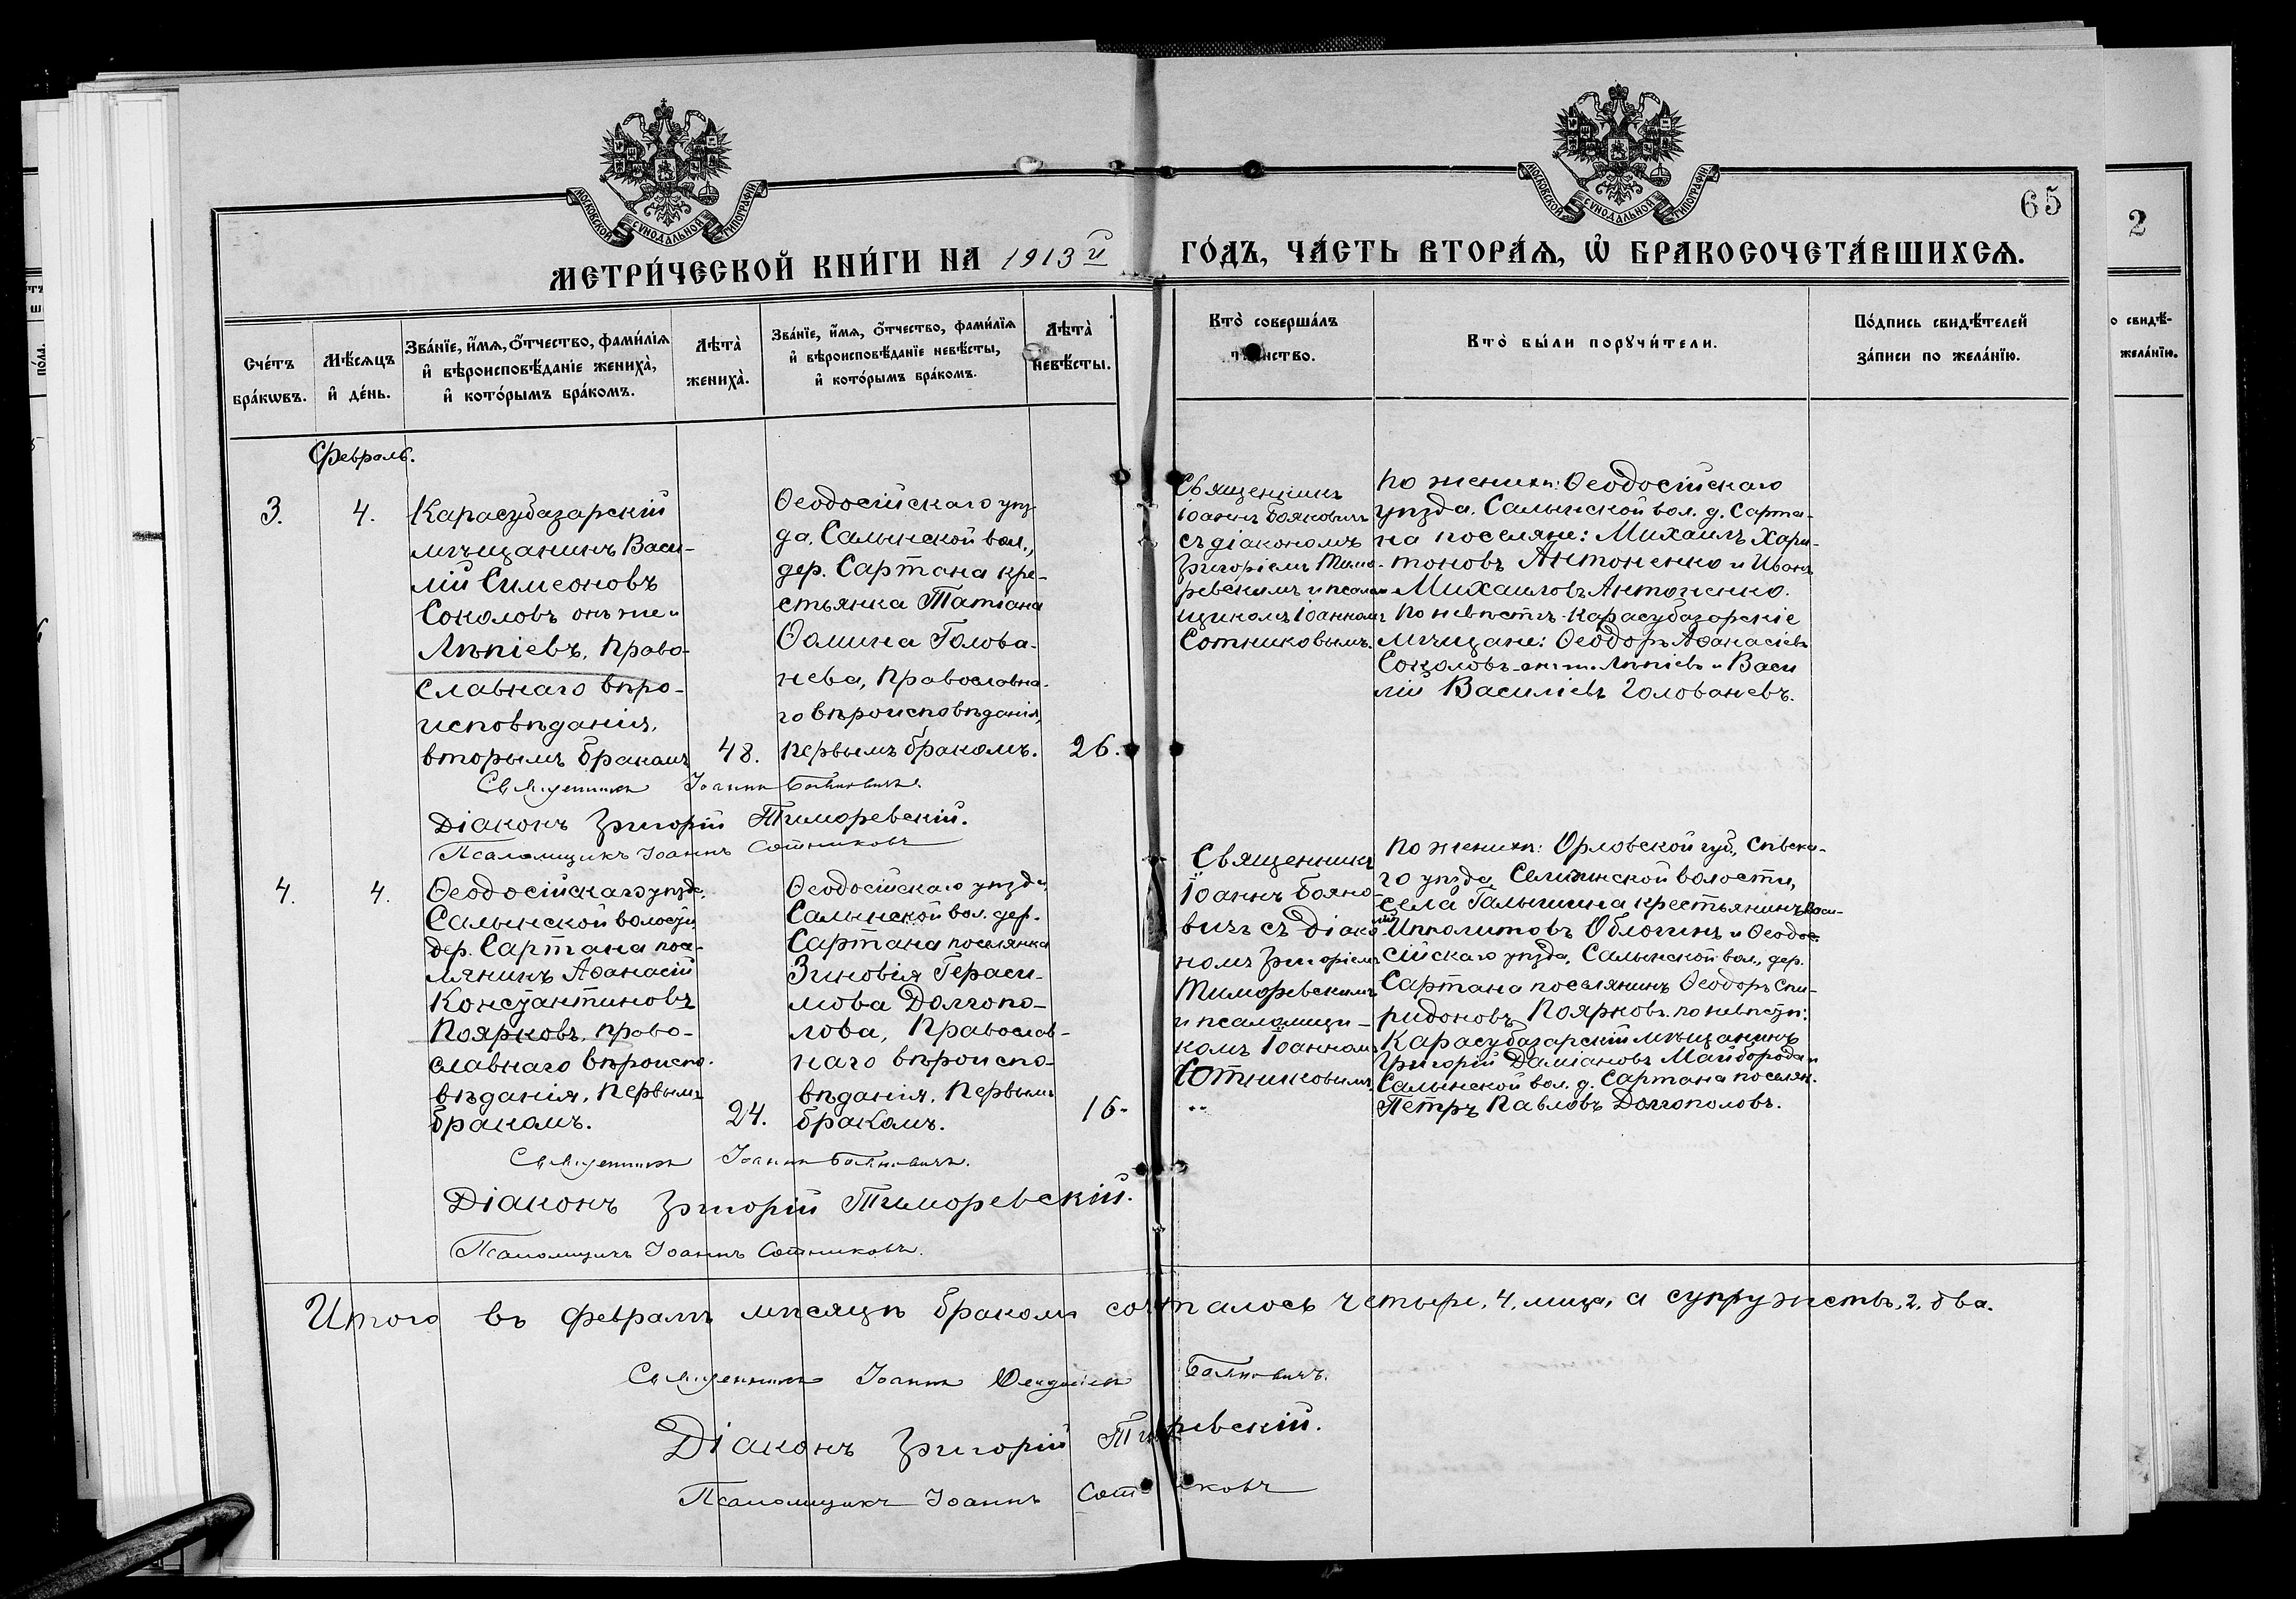 МОСКОВСКОЙ СѴНОДАЛЬНОЙ ТИПОГРАФІИ
МОСКОВСКОЙ СѴНОДАЛЬНОЙ ТИПОГРАФІИ
65
2
МЕТРИ́ЧЕСКОЙ КНИ́ГИ НА 1913 й
ГО́ДЪ, ЧА́СТЬ ВТОРА́Ѧ, Ѡ҆ БРАКОСОЧЕТА́ВШИХСѦ.
Сче́тъ
бра́кѡвъ.
Мѣ́сяцъ
и҆ де́нь.
Зва́нїе, и҆́мя, ѻ҆́тчество, фами́лїя
и҆ вѣроисповѣ́данїе жениха̀,
и҆ кото́рымъ бра́комъ.
Лѣта̀
жениха̀.
Зва́нїе, и҆́мя, ѻ҆́тчество, фами́лїя
и҆ вѣроисповѣ́данїе невѣ́сты,
и҆ кото́рымъ бра́комъ.
Лѣта̀
невѣ́сты.
Кто̀ соверша́лъ
Кто̀ бы́ли порꙋчи́тели.
По́дпись свидѣ́телей
за́писи по жела́нїю.
Февраль.
3.
4.
Карасубазарскій
мѣщанинъ Васи-
лій Симеоновъ
Соколовъ онъ же и
Лѣпіевъ, право-
славнаго вѣро-
исповѣданія,
вторымъ бракомъ
48.
Ѳеодосійскаго уѣз-
да, Салынской вол.,
дер. Сартана кре-
стьянка Татіана
Ѳомина Голова-
нева, православна-
го вѣроисповѣданія,
первымъ бракомъ.
26.
Священникъ
Іоаннъ Бояновичъ
съ діакономъ
Григоріемъ Тимо-
ревскимъ и псалом-
щикомъ Іоанномъ
Сотниковымъ.
По женихѣ: Ѳеодосійскаго
уѣзда, Салынской вол. д. Сарта-
на поселяне: Михаилъ Хари-
тоновъ Антоненко и Иванъ
Михаиловъ Антоненко.
По невѣстѣ: Карасубазарскіе
мѣщане: Ѳеодоръ Аѳанасіевъ
Соколовъ-он. ж. Лѣпіевъ и Васи
лій Василіевъ Голованевъ.
Священникъ Іоаннъ Бояновичъ.
Діаконъ Григорій Тиморевскій.
Псаломщикъ Іоаннъ Сотниковъ
4.
4.
Ѳеодосійскаго уѣзда,
Салынской волости,
дер. Сартана посе-
лянинъ Аѳанасій
Константиновъ
Поярковъ, право-
славнаго вѣроиспо-
вѣданія, первымъ
бракомъ.
24.
Ѳеодосійскаго уѣзда
Салынской вол. дер.
Сартана поселянка
Зиновія Гераси-
мова Долгопо-
лова, православ-
наго вѣроиспо-
вѣданія, первымъ
бракомъ.
16.
Священникъ
Іоаннъ Бояно-
вичъ съ діако-
номъ Григоріемъ
Тиморевскимъ
и псаломщи-
комъ Іоанномъ
Сотниковымъ.
По женихѣ: Орловской губ., Сѣвска-
го уѣзда, волости,
села крестьянинъ Васи-
лій Ипполитовъ и Ѳеодо-
сійскаго уѣзда, Салынской вол., дер.
Сартана поселянинъ Ѳеодоръ Спи-
ридоновъ Поярковъ. по невѣстѣ:
Карасубазарскій мѣщанинъ
Григорій Даміановъ Майборода и
Салынской вол. д. Сартана поселян.
Петръ Павловъ Долгополовъ.
Священникъ Іоаннъ Бояновичъ.
Діаконъ Григорій Тиморевскій.
Псаломщикъ Іоаннъ Сотниковъ.
Итого въ февралѣ мѣсяцѣ бракомъ сочеталось четыре, 4, лица, а супружествъ, 2, два.
Священникъ Іоаннъ Бояновичъ.
Діаконъ Григорій Тиморевскій.
Псаломщикъ Іоаннъ Сотниковъ